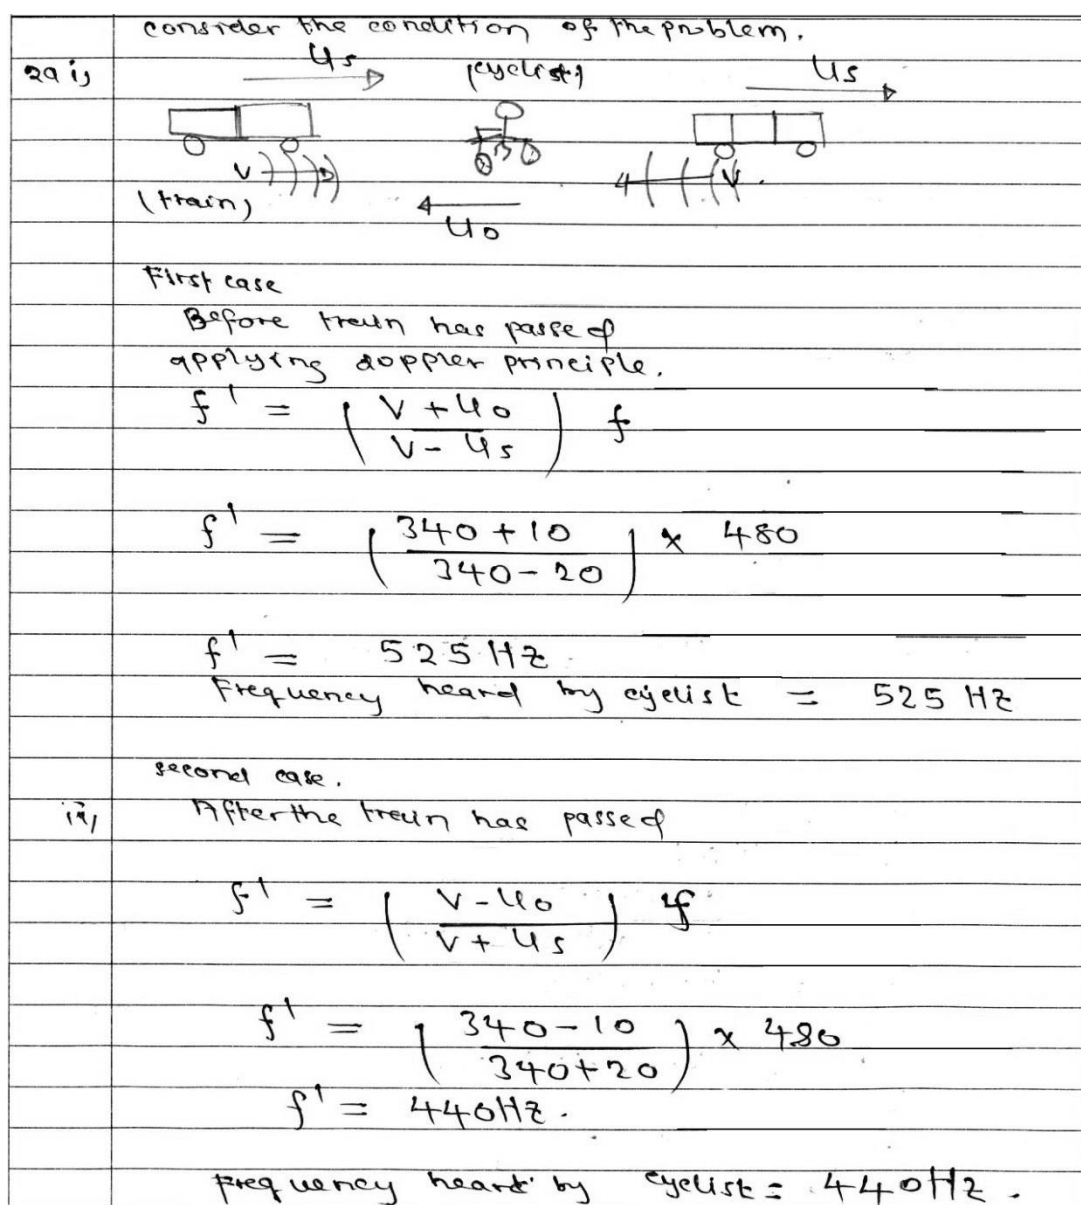 consider the condition of the problem.
2a i,
Us (cyclist) Us
V V
(train)
Uo
First case
Before train has passed
applying doppler principle.
f' = ( V + Uo / V - Us ) f
f' = ( 340 + 10 / 340 - 20 ) x 480
f' = 525 Hz
Frequency heard by cyclist = 525 Hz
second case.
ii, After the train has passed
f' = ( V - Uo / V + Us ) f
f' = ( 340 - 10 / 340 + 20 ) x 480
f' = 440Hz.
Frequency heard by cyclist = 440Hz.